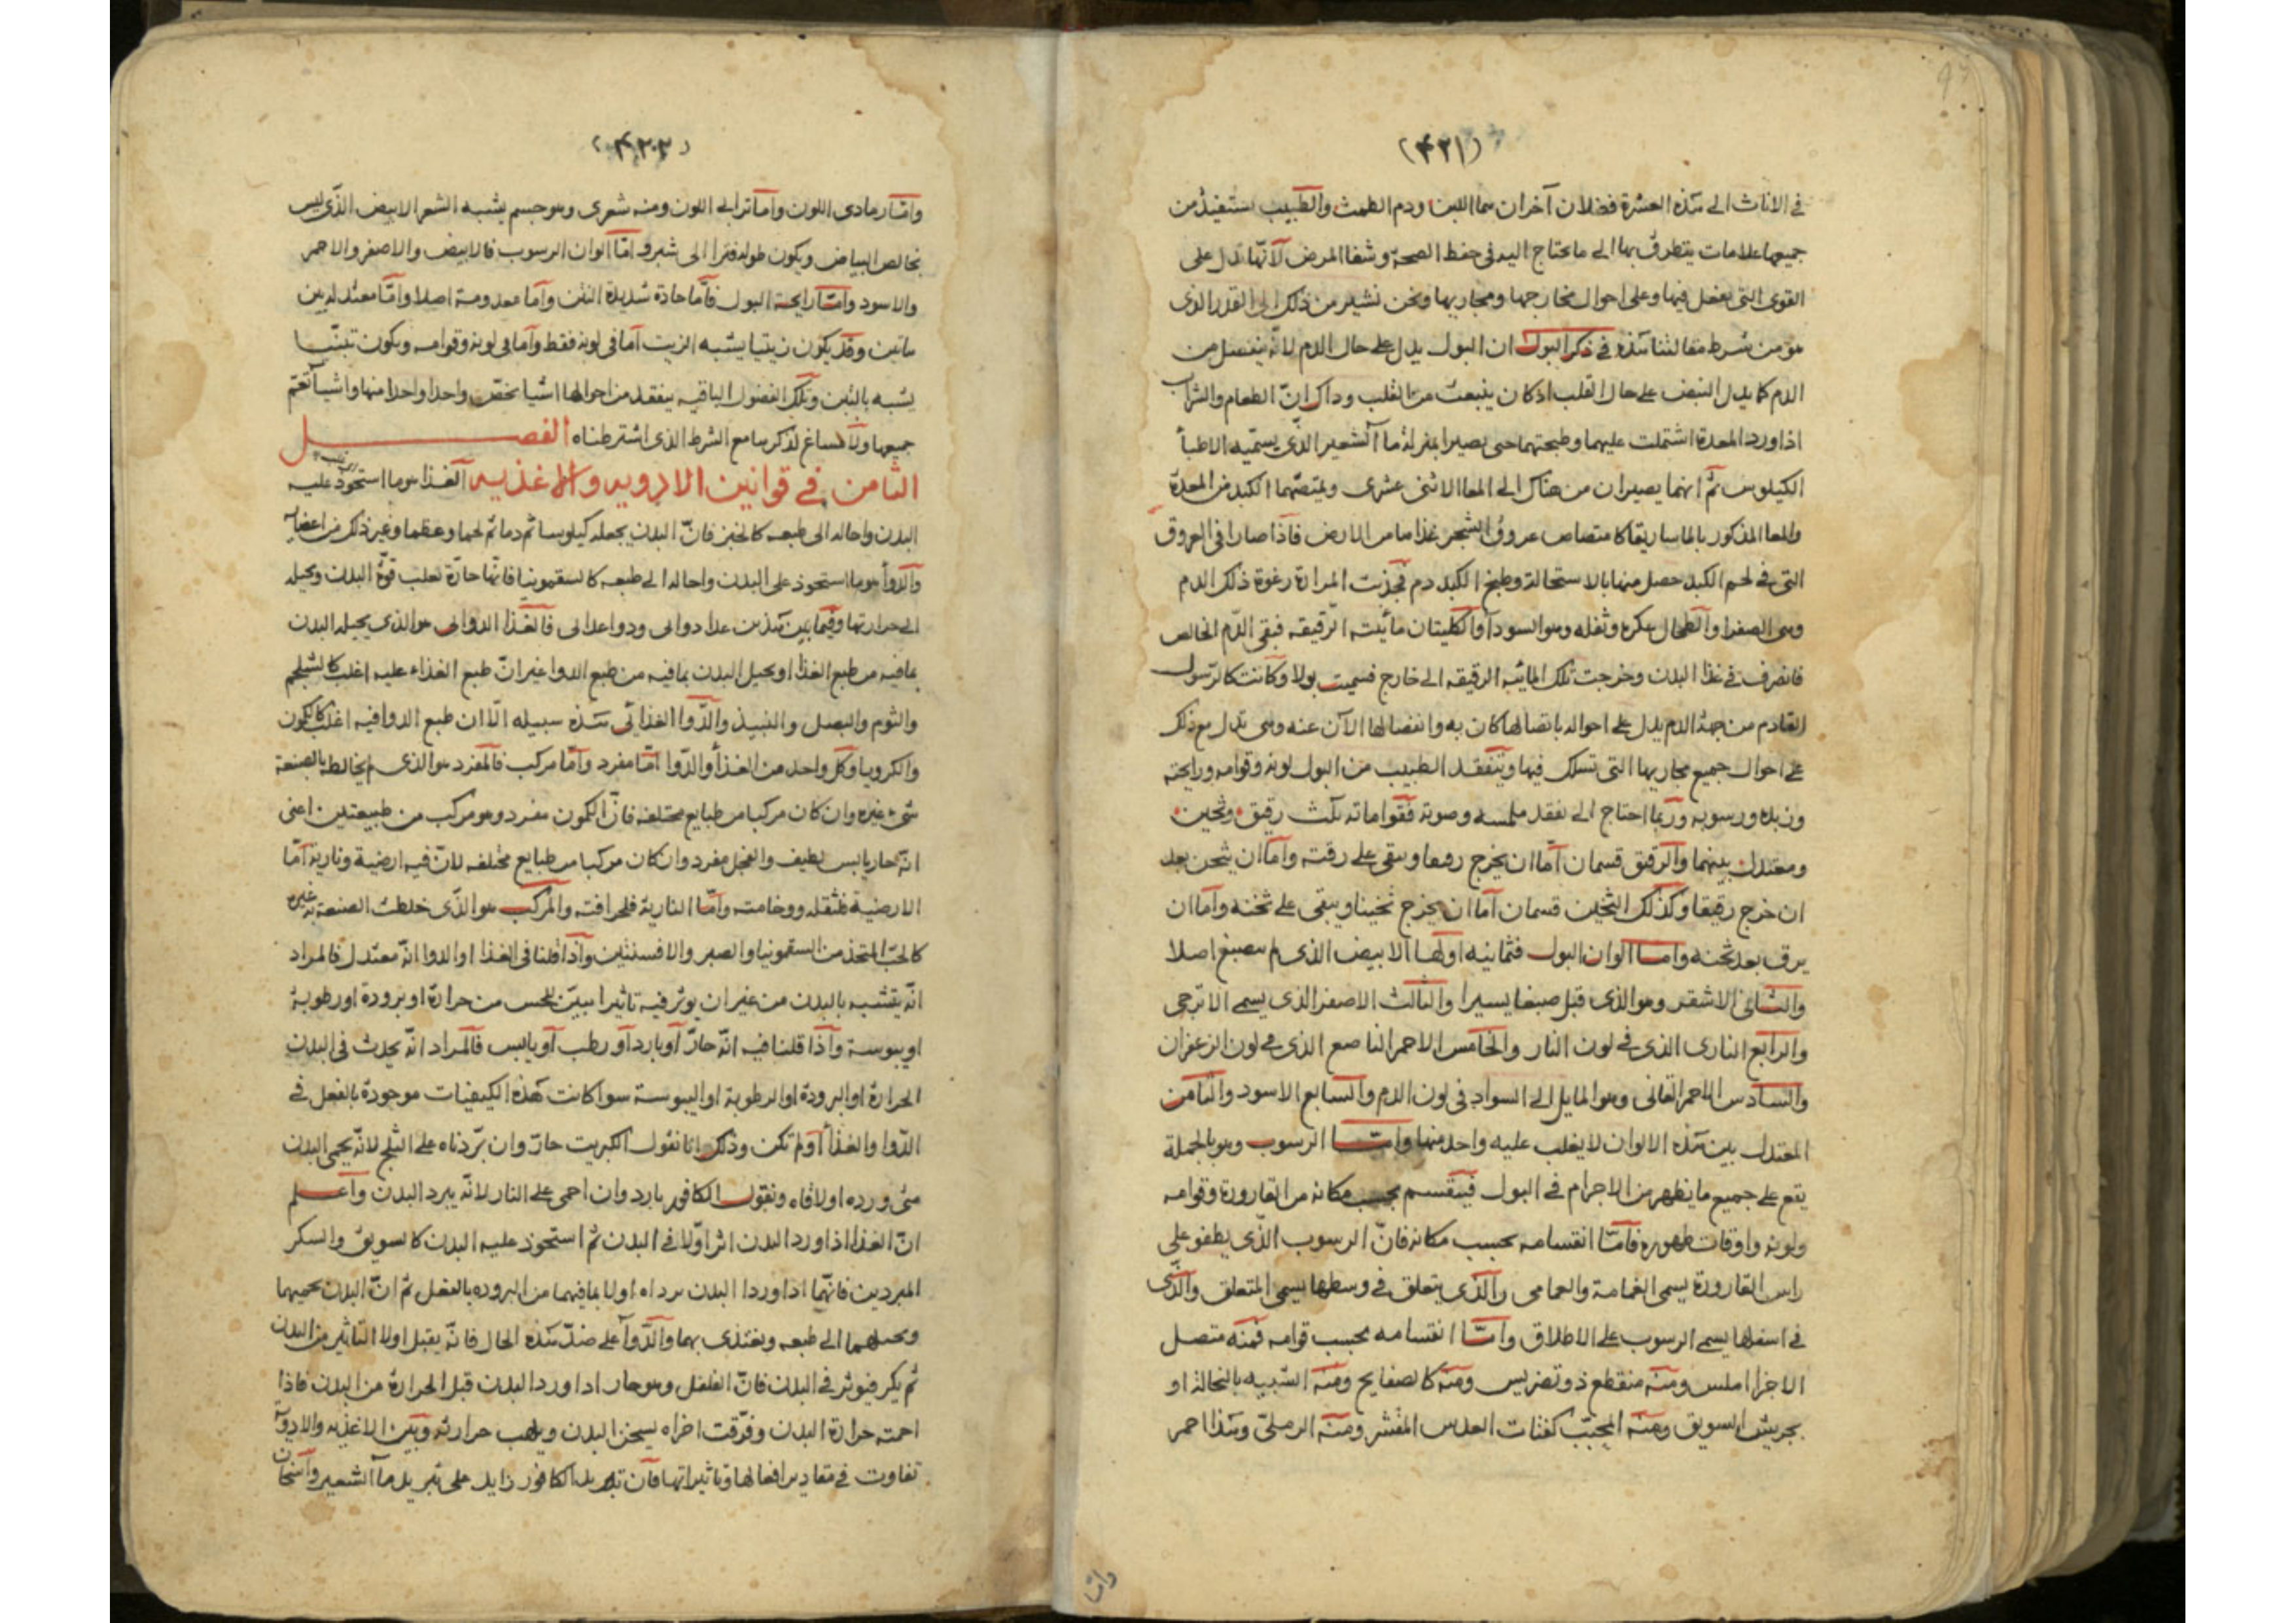 (٤٢١)
في الاناث الى هذه العشرة فضلان آخران هما اللبن ودم الطمث والطبيب يستفيد من
جميعها علامات يتطرق بها الى ما يحتاج اليه في حفظ الصحة وشفا المرض لانها تدل على
القوى التي تفعل فيها وعلى احوال مخارجها ومجاريها ونحن نشير من ذلك الى القدر الذي
هو من شرط مقالتنا هذه في ذكر البول ان البول يدل على حال الدم لانه ينفصل من
الدم كما يدل النبض على حال القلب اذ كان ينبعث من القلب وذاك ان الطعام والشراب
اذا ورد المعدة اشتملت عليهما وطبختهما حتى يصيرا بمنزلة ما الشعير الذي يسميه الاطبا
الكيلوس ثم انهما يصيران من هناك الى المعا الاثنى عشرى ويمتصهما الكبد من المعدة
والمعا المذكور بالماساريقا كامتصاص عروق الشجر غذاها من الارض فاذا صارا في العروق
التي في لحم الكبد حصل منها بالاستحالة وطبخ الكبد دم فجذبت المرارة رغوة ذلك الدم
وهي الصفرا والطحال عكره وثفله وهو السودا والكليتان مائيته الرقيقه فبقى الدم الخالص
فانصرف في غذا البدن وخرجت تلك المائيه الرقيقه الى خارج فسميت بولا وكانت كالرسول
القادم من جهة الدم يدل على احواله باتصالها كان به وانفصالها الآن عنه وهي تدل مع ذلك
على احوال جميع مجاريها التي تسلك فيها ويتفقد الطبيب من البول لونه وقوامه ورايحته
وزبده ورسوبه وربما احتاج الى تفقد ملمسه وصوته فقواماته ثلث رقيق وثخين
ومعتدل بينهما والرقيق قسمان اما ان يخرج رقيقا ويبقى على رقته واما ان يثخن بعد
ان خرج رقيقا وكذلك الثخين قسمان اما ان يخرج ثخينا ويبقى على ثخنه واما ان
يرق بعد ثخنه واما الوان البول فثمانيه اولها الابيض الذي لم ينصبغ اصلا
والثاني الاشقر وهو الذي قبل صبغا يسيرا والثالث الاصفر الذي يسمى الاترجى
والرابع النارى الذي في لون النار والخامس الاحمر الناصع الذي في لون الزعفران
والسادس الاحمر القانى وهو المايل الى السواد في لون الدم والسابع الاسود والثامن
المعتدل بين هذه الالوان لا يغلب عليه واحد منها واما الرسوب وهو بالجملة
يقع على جميع ما يظهر من الاجرام في البول فينقسم بحسب مكانه من القارورة وقوامه
ولونه واوقات ظهوره فاما انقسامه بحسب مكانه فان الرسوب الذي يطفو على
راس القارورة يسمى الغمامة والغمامى والذي يتعلق في وسطها يسمى المتعلق والذى
في اسفلها يسمى الرسوب على الاطلاق واما انقسامه بحسب قوامه فمنه متصل
الاجزا املس ومنه منقطع ذو تضريس ومنه كالصفايح ومنه الشبيه بالنخالة او
بجريش السويق ومنه المحبب كفتات العدس المقشر ومنه الرملى وهذا احمر
واما
(٤٢٢)
واما رمادى اللون واما ترابى اللون ومنه شعرى وهو جسم يشبه الشعر الابيض الذي ليس
بخالص البياض ويكون طوله فترا الى شبر واما الوان الرسوب فالابيض والاصفر والاحمر
والاسود واما رايحة البول فاما حادة شديدة النتن واما معدومة اصلا واما معتدلة بين
هاتين وقد يكون زيتيا يشبه الزيت اما في لونه فقط واما في لونه وقوامه ويكون تبنيا
يشبه بالتبن وتلك الفضول الباقيه يتفقد من احوالها اشيا تخص واحدا واحدا منها واشيا تعم
جميعها ولا مساغ لذكرها مع الشرط الذي اشترطناه الفصل
الثامن في قوانين الادويه والاغذيه الغذا هو ما استحوذ عليه
البدن واحاله الى طبعه كالخبز فان البدن يجعله كيلوسا ثم دما ثم لحما وعظما وغير ذلك من اعضا
والدوا هو ما استحوذ على البدن واحاله الى طبعه كالسقمونيا فانها حارة تغلب قوة البدن وتحيله
الى حرارتها وفيما بين هذين غذا دوائى ودوا غذائى فالغذا الدوائى هو الذي يحيله البدن
بما فيه من طبع الغذا او يحيل البدن بما فيه من طبع الدوا غير ان طبع الغذاء عليه اغلب كالشلجم
والثوم والبصل والنبيذ والدوا الغذائى هذه سبيله الا ان طبع الدوا فيه اغلب كالكمون
والكرويا وكل واحد من الغذا والدوا اما مفرد واما مركب فالمفرد هو الذي لم يخالطه بالصنعة
شىء غيره وان كان مركبا من طبايع مختلفه فان الكمون مفرد وهو مركب من طبيعتين اعنى
انه حار يابس لطيف والفجل مفرد وان كان مركبا من طبايع مختلفه لان فيه ارضية ونارية اما
الارضية فثقله ووخامته واما النارية فلحرافته والمركب هو الذي خلطت الصنعة به غيره
كالحب المتخذ من السقمونيا والصبر والافسنتين واذا قلنا في الغذا او الدوا انه معتدل فالمراد
انه يتشبه بالبدن من غير ان يوثر فيه تاثيرا يبين للحس من حرارة او برودة او رطوبة
او يبوسة واذا قلنا فيه انه حار او بارد او رطب او يابس فالمراد انه يحدث في البدن
الحرارة او البرودة او الرطوبة او اليبوسة سوا كانت هذه الكيفيات موجودة بالفعل في
الدوا والغذا او لم تكن وذلك انا نقول الكبريت حار وان بردناه على الثلج لانه يحمى البدن
متى ورده او لاقاه ونقول الكافور بارد وان احمى على النار لانه يبرد البدن واعلم
ان الغذا اذا ورد البدن اثر اولا في البدن ثم استحوذ عليه البدن كالسويق والسكر
المبردين فانهما اذا وردا البدن برداه اولا بما فيهما من البروده بالفعل ثم ان البدن يحميهما
ويحيلهما الى طبعه ويغتذى بهما والدوا على ضد هذه الحال فانه يقبل اولا التاثير من البدن
ثم يكر فيوثر في البدن فان الفلفل وهو حار اذا ورد البدن قبل الحرارة من البدن فاذا
احمته حرارة البدن وفرقت اجزاه يسخن البدن ويلهب حرارته وبين الاغذيه والادوية
تفاوت في مقادير افعالها وتاثيراتها فان تبريد الكافور زايد على تبريد ما الشعير واسخان